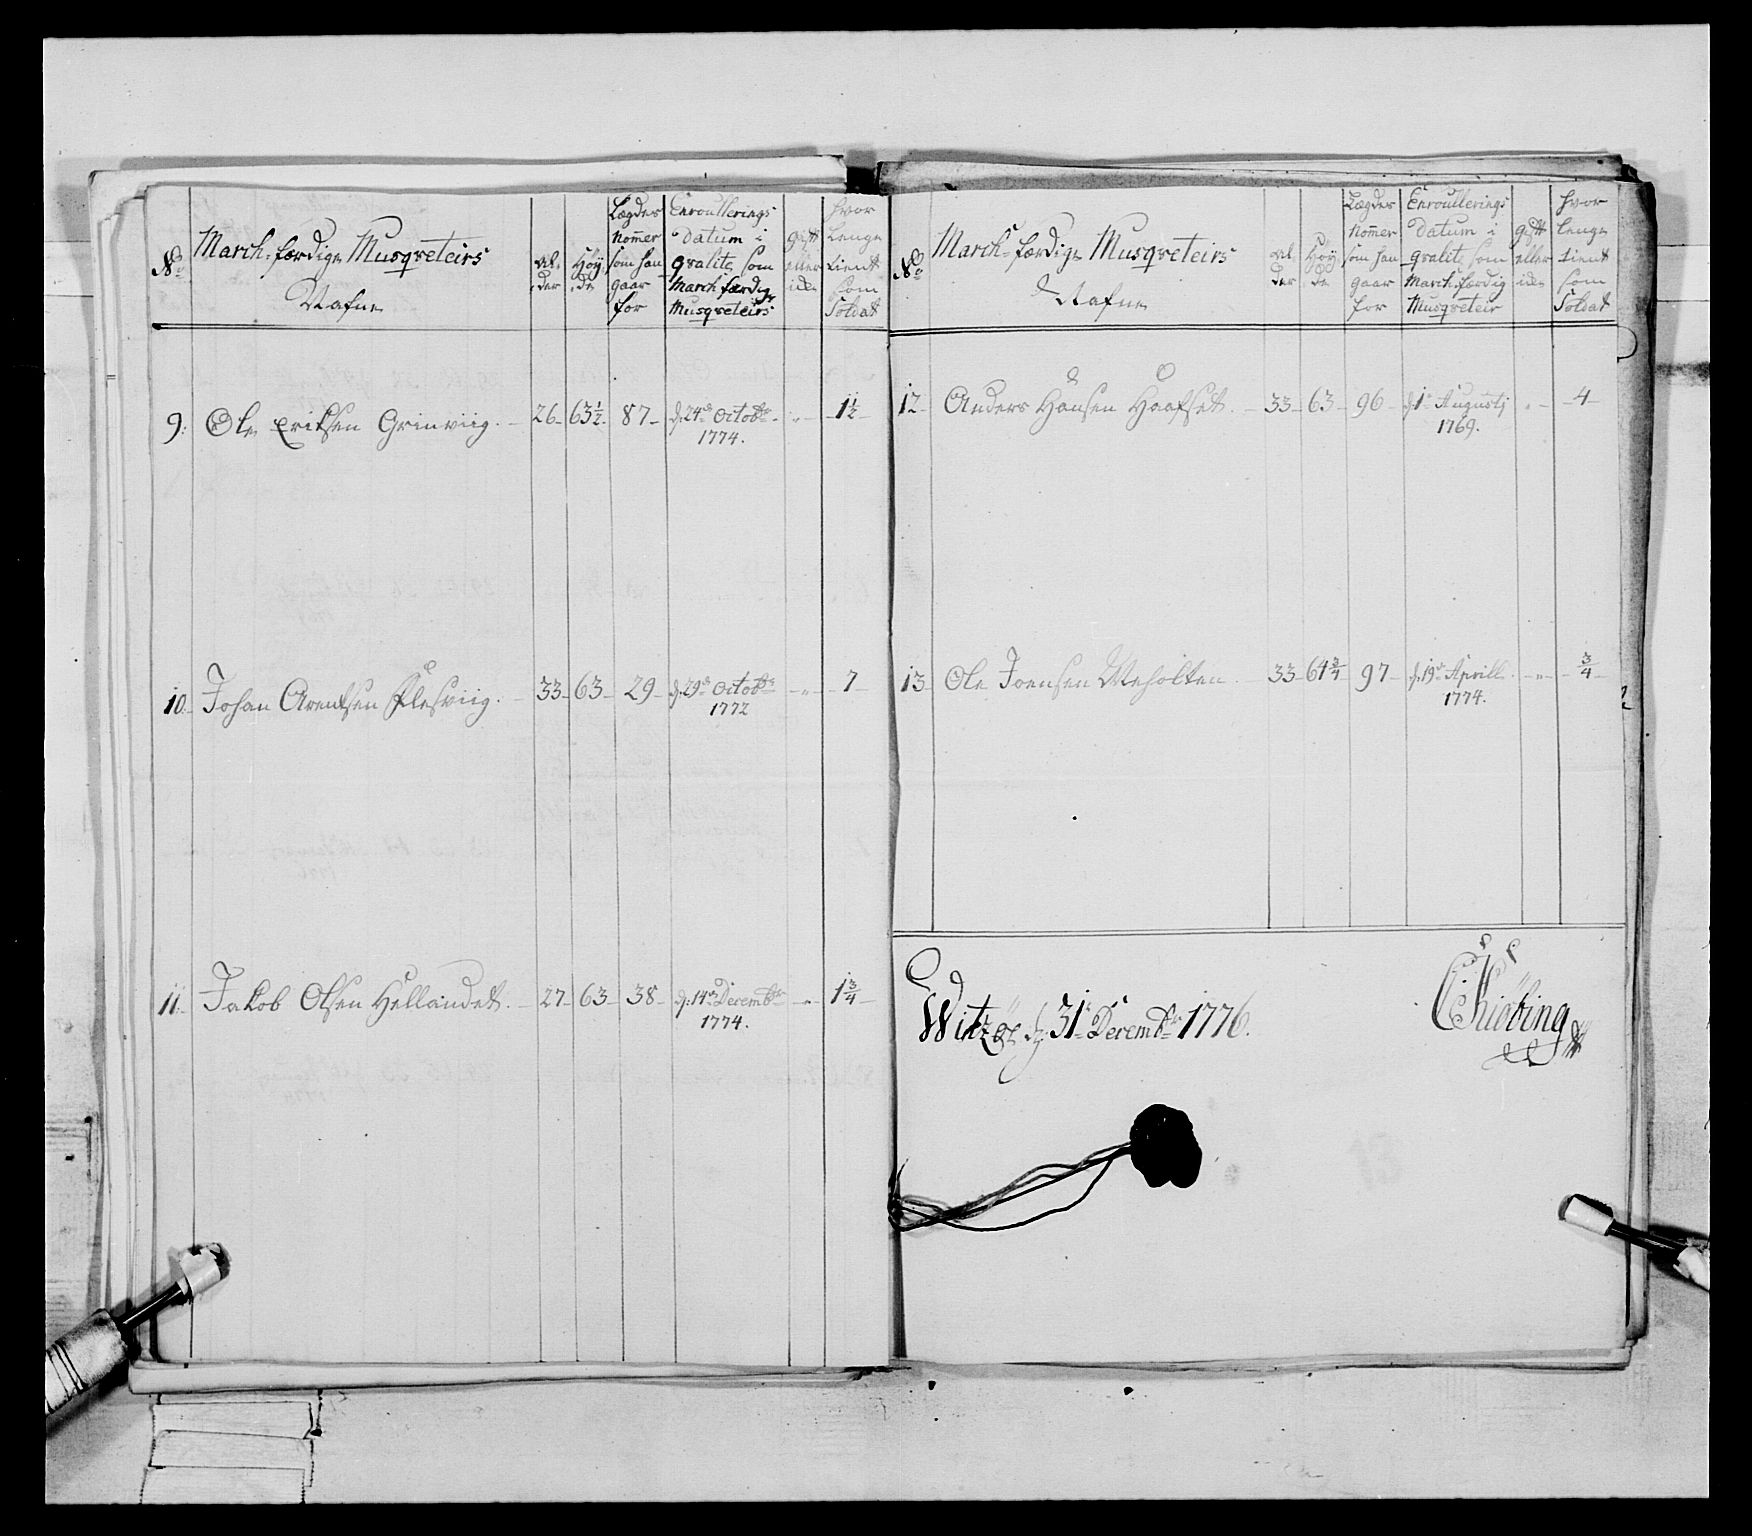 No
March-færdige Musqveteirs
Nafne
Al-
der
Høy-
de
Lægdes
Nom̄er
som han
gaar
for
Enroullerings
Datum i
qvalite som
March færdig
Musqveteirs
gift
eller
icke
hvor
lenge
tient
som
Soldat
9. Ole Eriksen Grinviig. 26. 63½. 87. d. 24de Octobr 1½
1774.
10. Johan Arentsen Plesviig. 33. 63. 29. d. 29de Octobr 7
1772
11. Jakob Olsen Hellandet. 27. 63. 38. d: 14de Decembr 1¾
1774.
No
March-færdige Musqveteirs
Nafne
Al-
der
Høy-
de
Lægdes
Nom̄er
som han
gaar
for
Enroullerings
Datum i
qvalite som
March-færdig
Musqveteir
gift
eller
icke
hvor
lenge
tient
som
Soldat
12. Anders Hansen Haafset. 33. 63. 96. d. 1te Augustj 4
1769.
13. Ole Joensen Meholten. 33. 64¾ 97. d. 19de Aprill ¾
1774.
d: 31te Decembr 1776.
Kiöbing